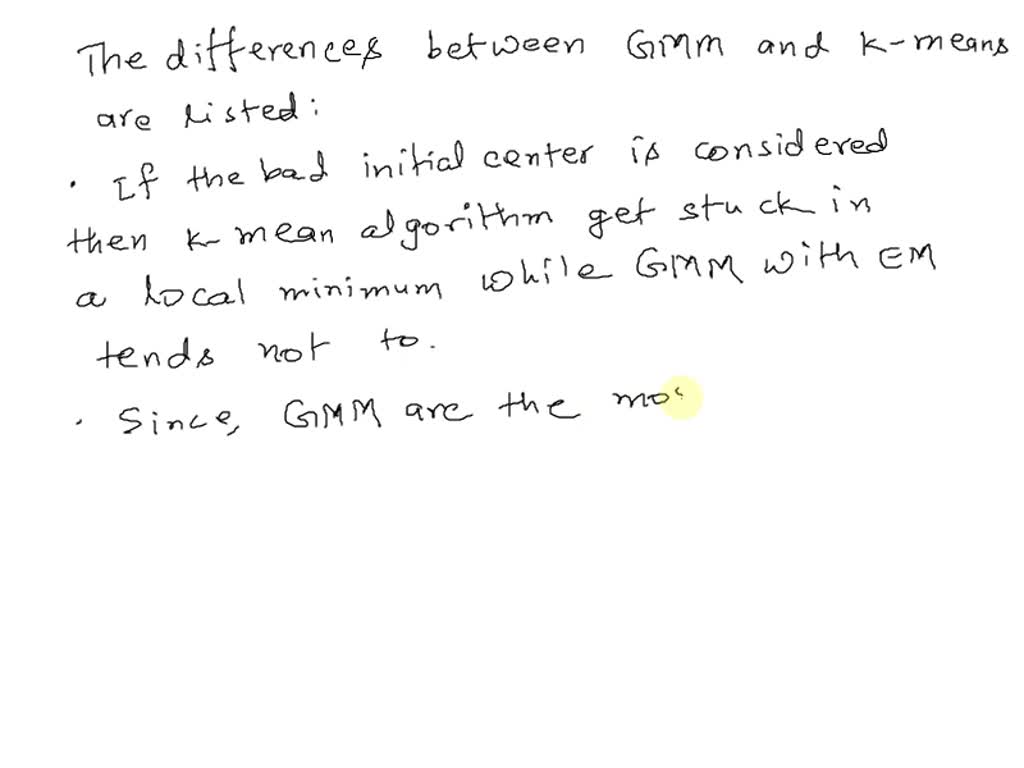 The differences between GMM and k-means
are listed:
· If the bad initial center is considered
then k-mean algorithm get stuck in
a local minimum while GMM with EM
tends not to.
· Since, GMM are the mo